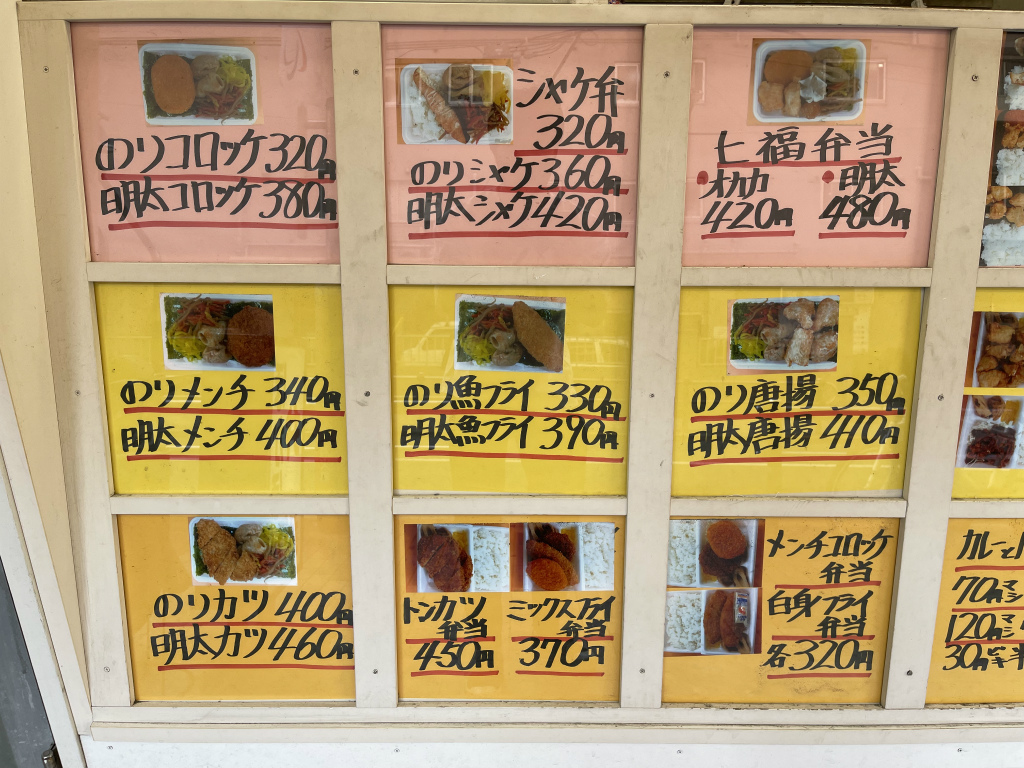 のりコロッケ320円
明太コロッケ380円
シャケ弁
320円
のりシャケ360円
明太シャケ420円
七福弁当
オカカ 明太
420円 480円
のりメンチ 340円
明太メンチ 400円
のり魚フライ 330円
明太魚フライ 390円
のり唐揚 350円
明太唐揚 410円
のりカツ 400円
明太カツ 460円
トンカツ
弁当
450円
ミックスフライ
弁当
370円
メンチコロッケ
弁当
白身フライ
弁当
各320円
カレーと
70円
120円
30円